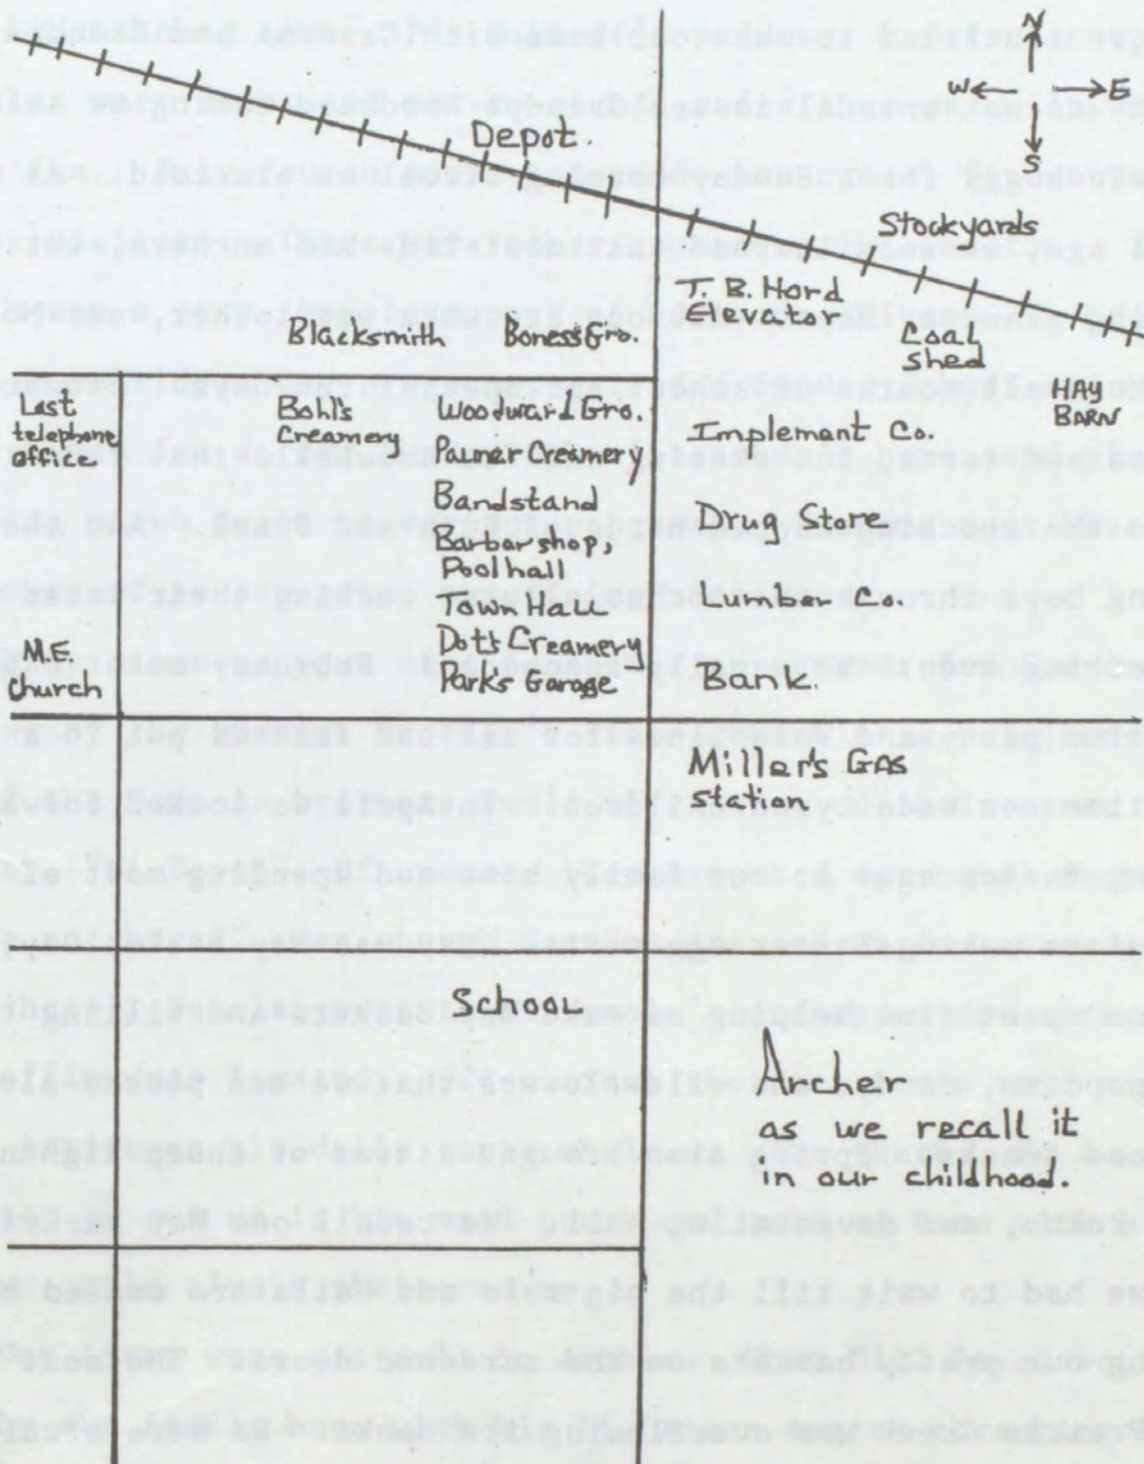 N
W E
S
Depot.
Stockyards
T. B. Hord
Elevator
Blacksmith
Boness Gro.
Coal
shed
HAY
BARN
Last
telephone
office
Bohl's
Creamery
Woodward Gro.
Palmer Creamery
Bandstand
Barbershop,
Poolhall
Town Hall
Dott's Creamery
Park's Garage
Implement Co.
Drug Store
Lumber Co.
Bank.
M.E.
church
Miller's GAS
station
School
Archer
as we recall it
in our childhood.